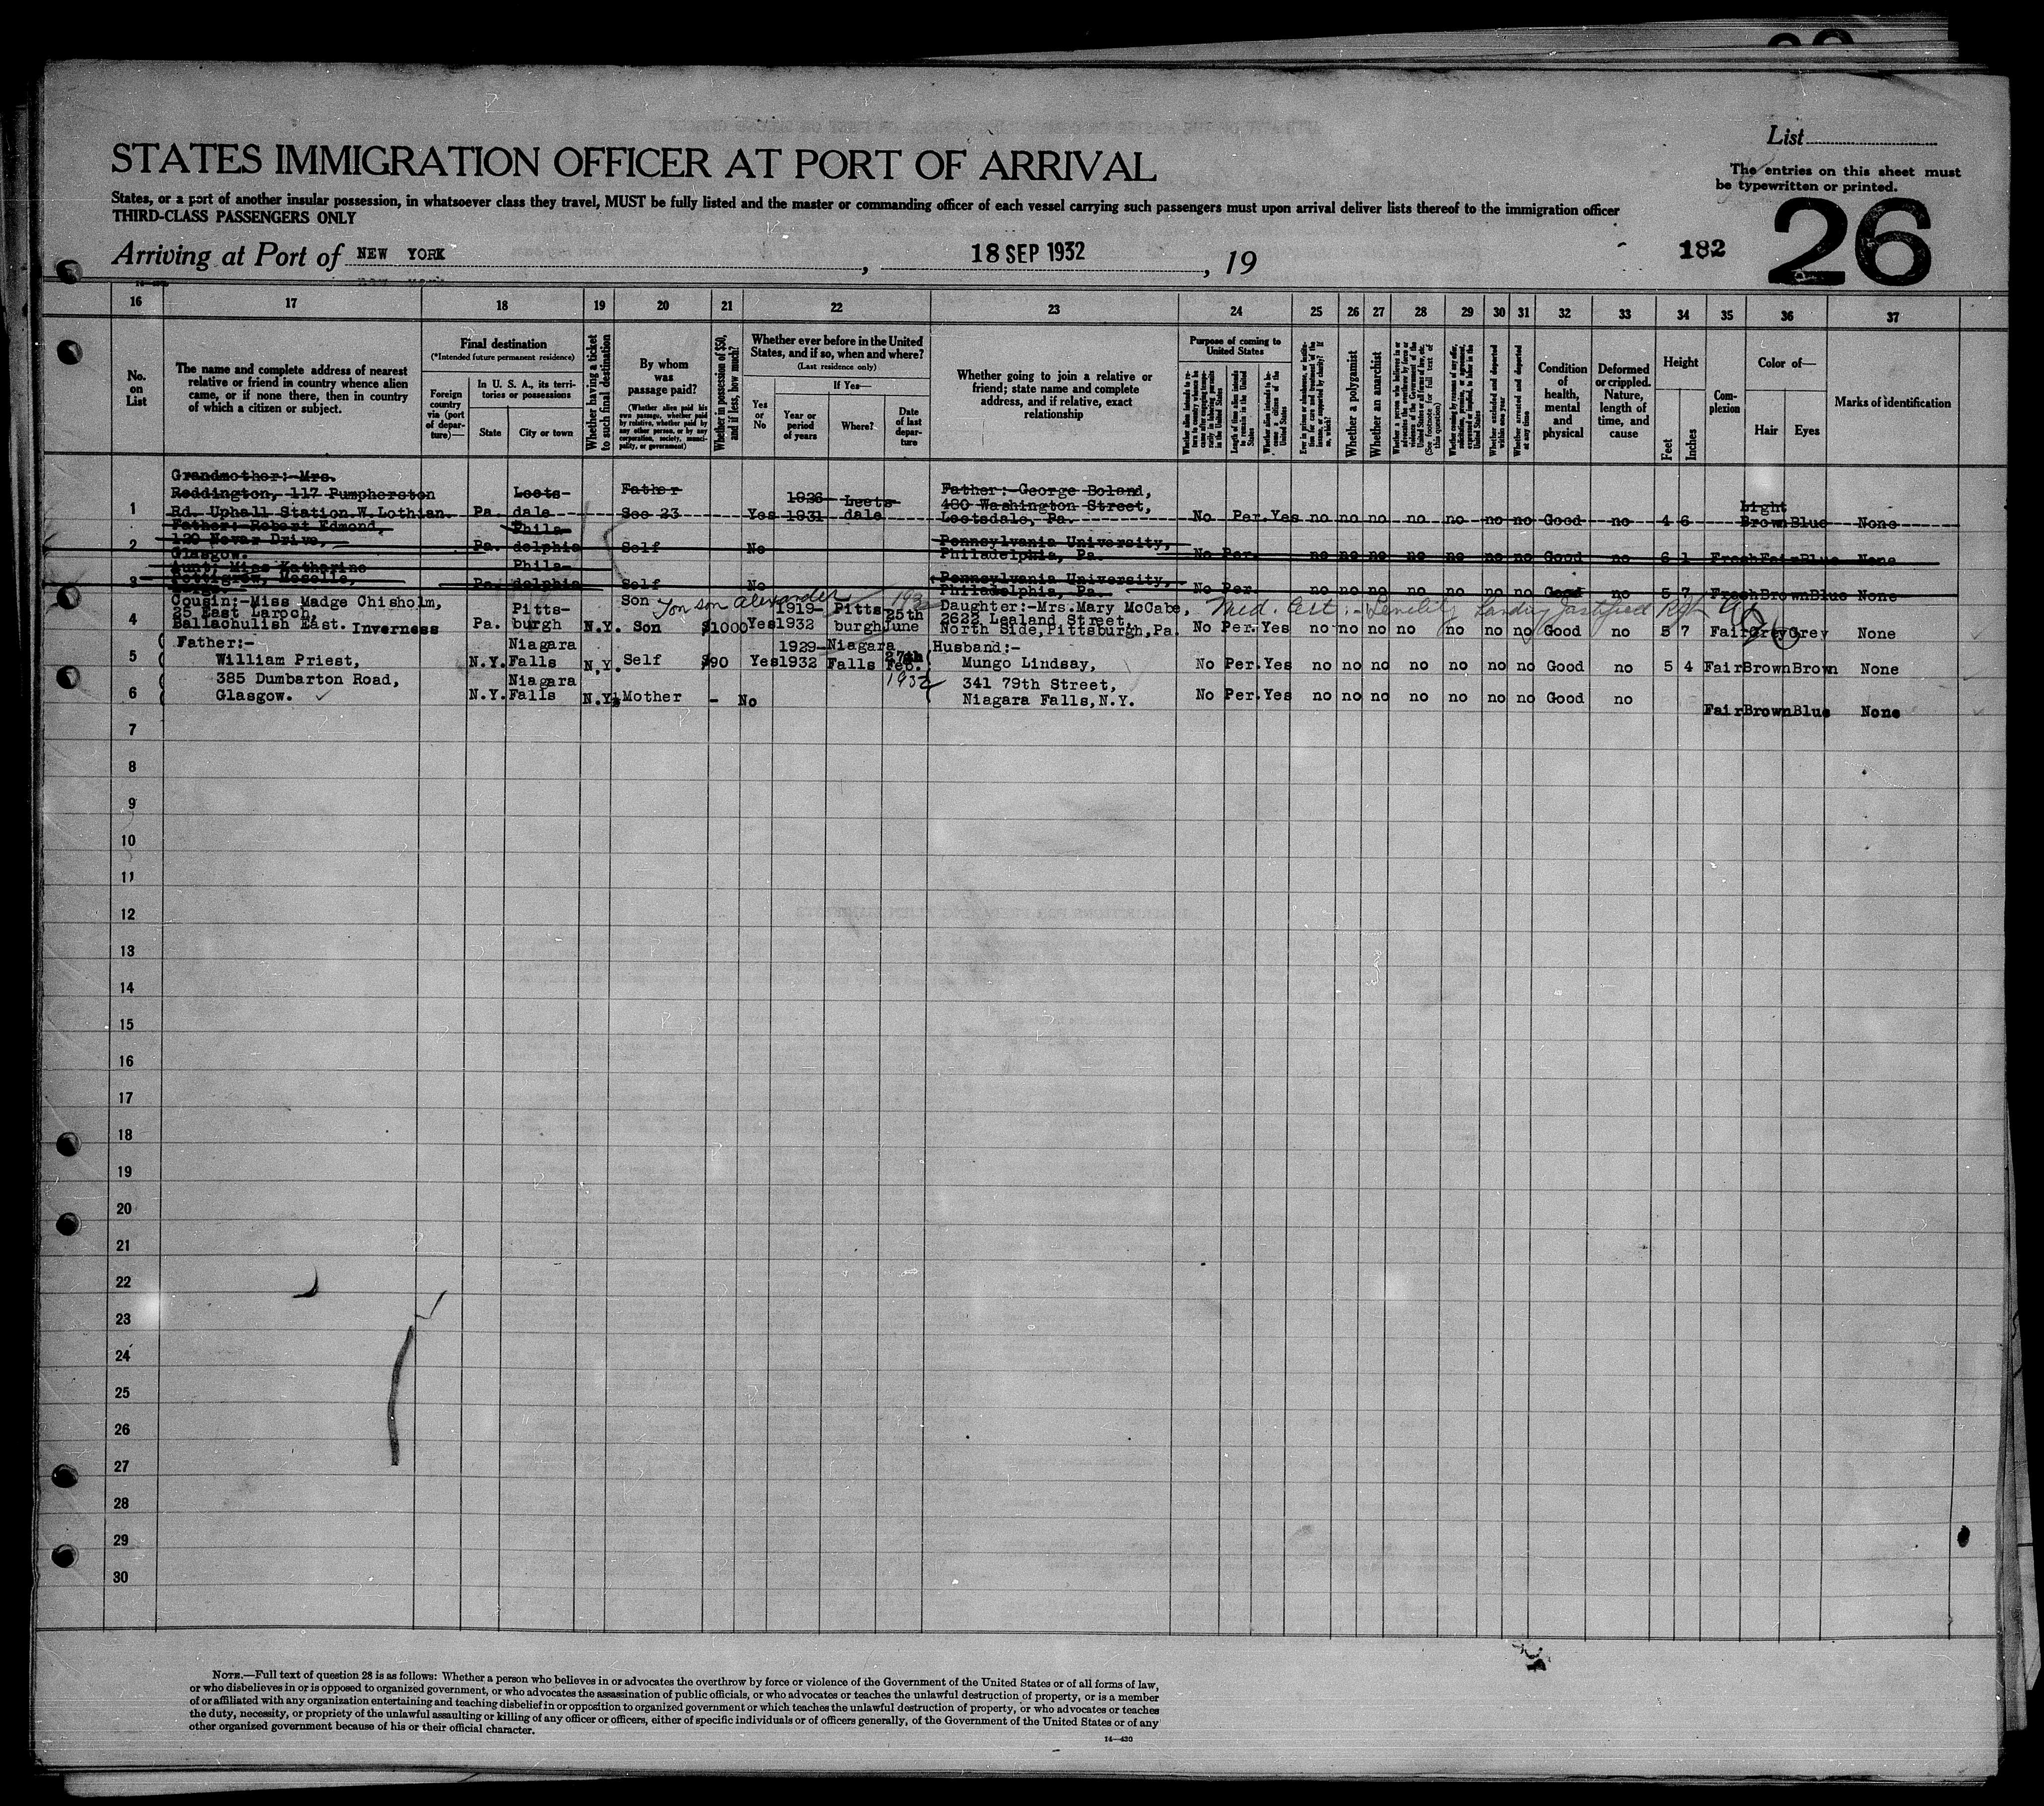 List
The entries on this sheet must
be typewritten or printed.
STATES IMMIGRATION OFFICER AT PORT OF ARRIVAL
States, or a port of another insular possession, in whatsoever class they travel, MUST be fully listed and the master or commanding officer of each vessel carrying such passengers must upon arrival deliver lists thereof to the immigration officer
THIRD-CLASS PASSENGERS ONLY
Arriving at Port of NEW YORK, 18 SEP 1932, 19
182 26
16 17 18 19 20 21 22 23 24 25 26 27 28 29 30 31 32 33 34 35 36 37
No. on List
The name and complete address of nearest relative or friend in country whence alien came, or if none there, then in country of which a citizen or subject.
Final destination
(*Intended future permanent residence)
Foreign country via (port of departure)—
In U. S. A., its territories or possessions
State City or town
Whether having a ticket to such final destination
By whom was passage paid?
(Whether alien paid his own passage, whether paid by relative, whether paid by any other person, or by any corporation, society, municipality, or government)
Whether in possession of $50, and if less, how much?
Whether ever before in the United States, and if so, when and where?
(Last residence only)
Yes or No
If Yes—
Year or period of years
Where?
Date of last departure
Whether going to join a relative or friend; state name and complete address, and if relative, exact relationship
Purpose of coming to United States
Length of time alien intends to remain in the United States
Whether alien intends to become a citizen of the United States
Whether a polygamist
Whether an anarchist
Whether excluded and deported within one year
Whether arrested and deported at any time
Condition of health, mental and physical
Deformed or crippled. Nature, length of time, and cause
Height
Feet Inches
Complexion
Color of—
Hair Eyes
Marks of identification
1 Grandmother:-Mrs.
Reddington, 117 Pumpherston
Rd. Uphall Station.W.Lothian. Pa. Leets-dale Father See 23 Yes 1926-1931 Leets-dale Father:-George Boland, 480 Washington Street, Leetsdale, Pa. No Per. Yes no no no no no no no Good no 4 6 Light Brown Blue None
2 Father: Robert Edmond,
120 Novar Drive,
Glasgow. Pa. Phila-delphia Self No Pennsylvania University, Philadelphia, Pa. No Per. no no no no no no no Good no 6 1 Fresh Fair Blue None
3 Aunt; Miss Katharine
Pettigrew, Moselle, Pa. Phila-delphia Self No Pennsylvania University, Philadelphia, Pa. No Per. no no no no no no no Good no 5 7 Fresh Brown Blue None
4 Cousin:-Miss Madge Chisholm,
25 East Laroch,
Ballachulish East. Inverness Pa. Pitts-burgh N.Y. Son Son son Alexander $1000 Yes 1919-1932 Pitts-burgh 25th June 193 Daughter:-Mrs.Mary McCabe, 2622 Lealand Street, North Side, Pittsburgh, Pa. Med. Cert:- Senility Landing Justified No Per. Yes no no no no no no no Good no 5 7 Fair Grey Grey None
5 Father:-
William Priest, N.Y. Niagara Falls N.Y. Self $90 Yes 1929-1932 Niagara Falls 27th Feb. 1932 Husband:- Mungo Lindsay, No Per. Yes no no no no no no no Good no 5 4 Fair Brown Brown None
6 385 Dumbarton Road,
Glasgow. N.Y. Niagara Falls N.Y. Mother - No 341 79th Street, Niagara Falls, N.Y. No Per. Yes no no no no no no no Good no Fair Brown Blue None
7
8
9
10
11
12
13
14
15
16
17
18
19
20
21
22
23
24
25
26
27
28
29
30
NOTE.—Full text of question 28 is as follows: Whether a person who believes in or advocates the overthrow by force or violence of the Government of the United States or of all forms of law,
or who disbelieves in or is opposed to organized government, or who advocates the assassination of public officials, or who advocates or teaches the unlawful destruction of property, or is a member
of or affiliated with any organization entertaining and teaching disbelief in or opposition to organized government or which teaches the unlawful destruction of property, or who advocates or teaches
the duty, necessity, or propriety of the unlawful assaulting or killing of any officer or officers, either of specific individuals or of officers generally, of the Government of the United States or of any
other organized government because of his or their official character.
14—430